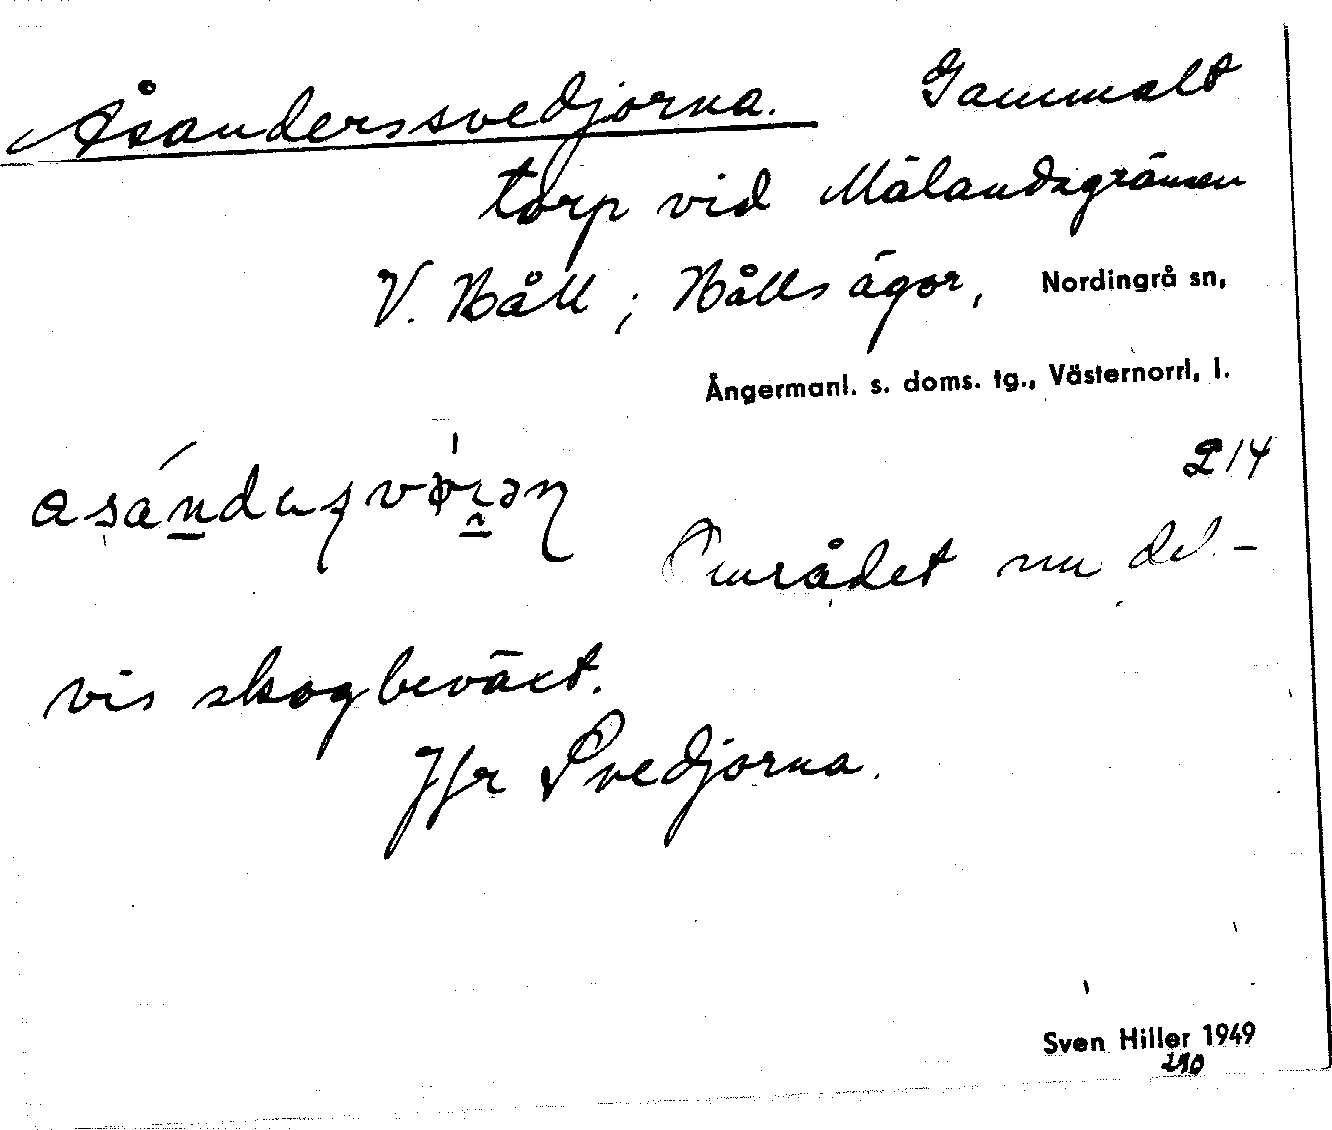 Åsanderssvedjorna. Gammalt
torp vid Mälandsgränsen
V. Båll; Bålls ägor, Nordingrå sn,
Ångermanl. s. doms. tg., Västernorrl. l.
214
Området nu del-
vis skogbeväxt.
Jfr Svedjorna.
Sven Hiller 1949